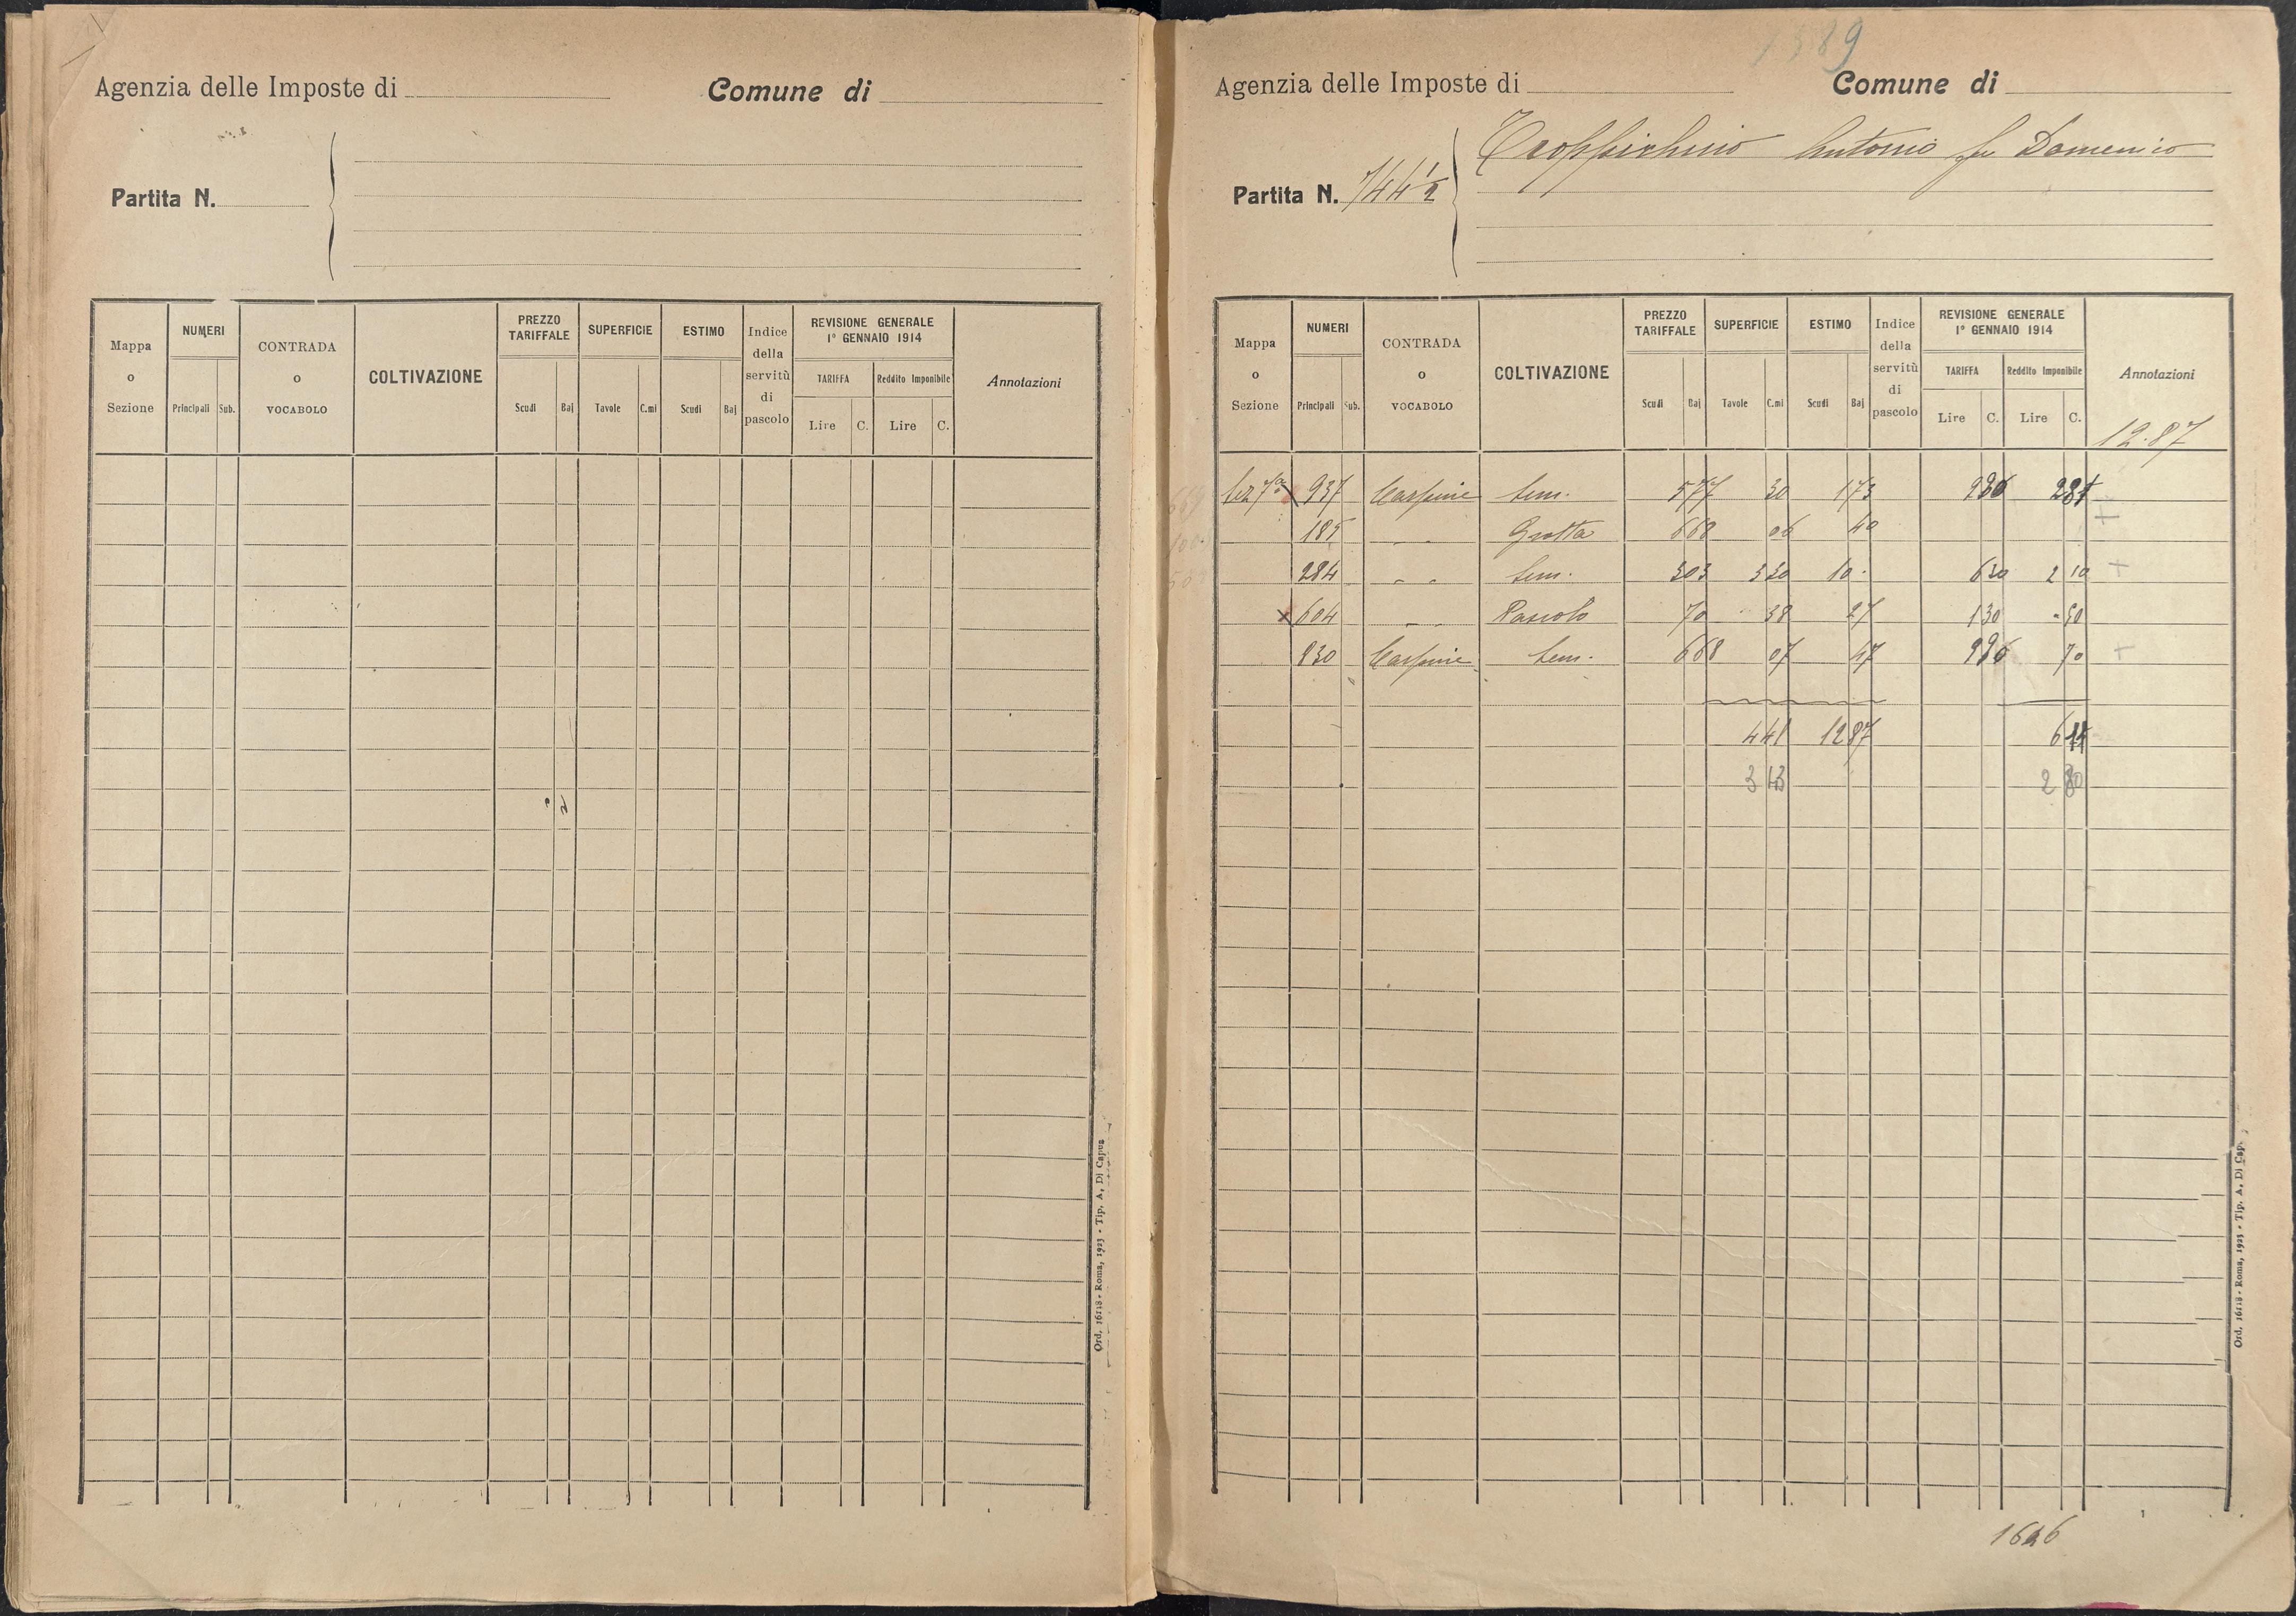 Agenzia delle Imposte di
Comune di
Partita N.
Mappa o Sezione
NUMERI
Principali Sub.
CONTRADA o VOCABOLO
COLTIVAZIONE
PREZZO TARIFFALE
Scudi Baj
SUPERFICIE
Tavole C.mi
ESTIMO
Scudi Baj
Indice della servitù di pascolo
REVISIONE GENERALE
1° GENNAIO 1914
TARIFFA
Lire C.
Reddito Imponibile
Lire C.
Annotazioni
Ord. 16118 - Roma, 1923 - Tip. A. Di Capua
1389
Agenzia delle Imposte di
Comune di
Antonio fu Domenico
Partita N. 744 1/2
Mappa o Sezione
NUMERI
Principali Sub.
CONTRADA o VOCABOLO
COLTIVAZIONE
PREZZO TARIFFALE
Scudi Baj
SUPERFICIE
Tavole C.mi
ESTIMO
Scudi Baj
Indice della servitù di pascolo
REVISIONE GENERALE
1° GENNAIO 1914
TARIFFA
Lire C.
Reddito Imponibile
Lire C.
Annotazioni
12.87
937 Carpine Sem. 577 30 173
185 " " Grotta 668 06 40
284 " " Sem. 303 330 10 - 630 2 10 +
x 604 " " Pascolo 70 38 27 130 - 50
830 Carpine Sem. 668 07 47 70 +
441 1287
3 43 2 80
1626
Ord. 16118 - Roma, 1923 - Tip. A. Di Cap